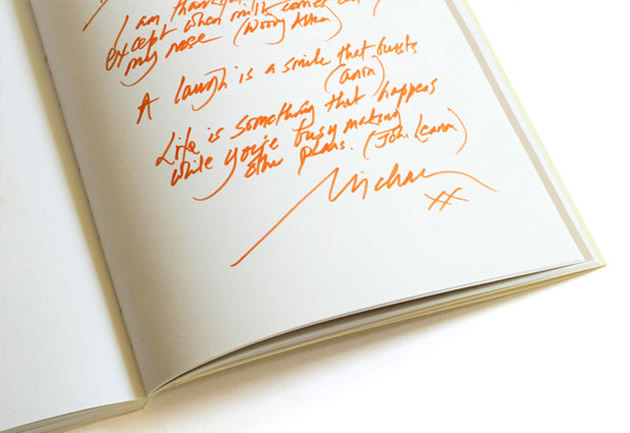 I am thankful
except when milk comes out
my nose (Woody Allen)
A laugh is a smile that bursts
(anon)
Life is something that happens
while you're busy making
other plans. (John Lennon)
Michael
XX